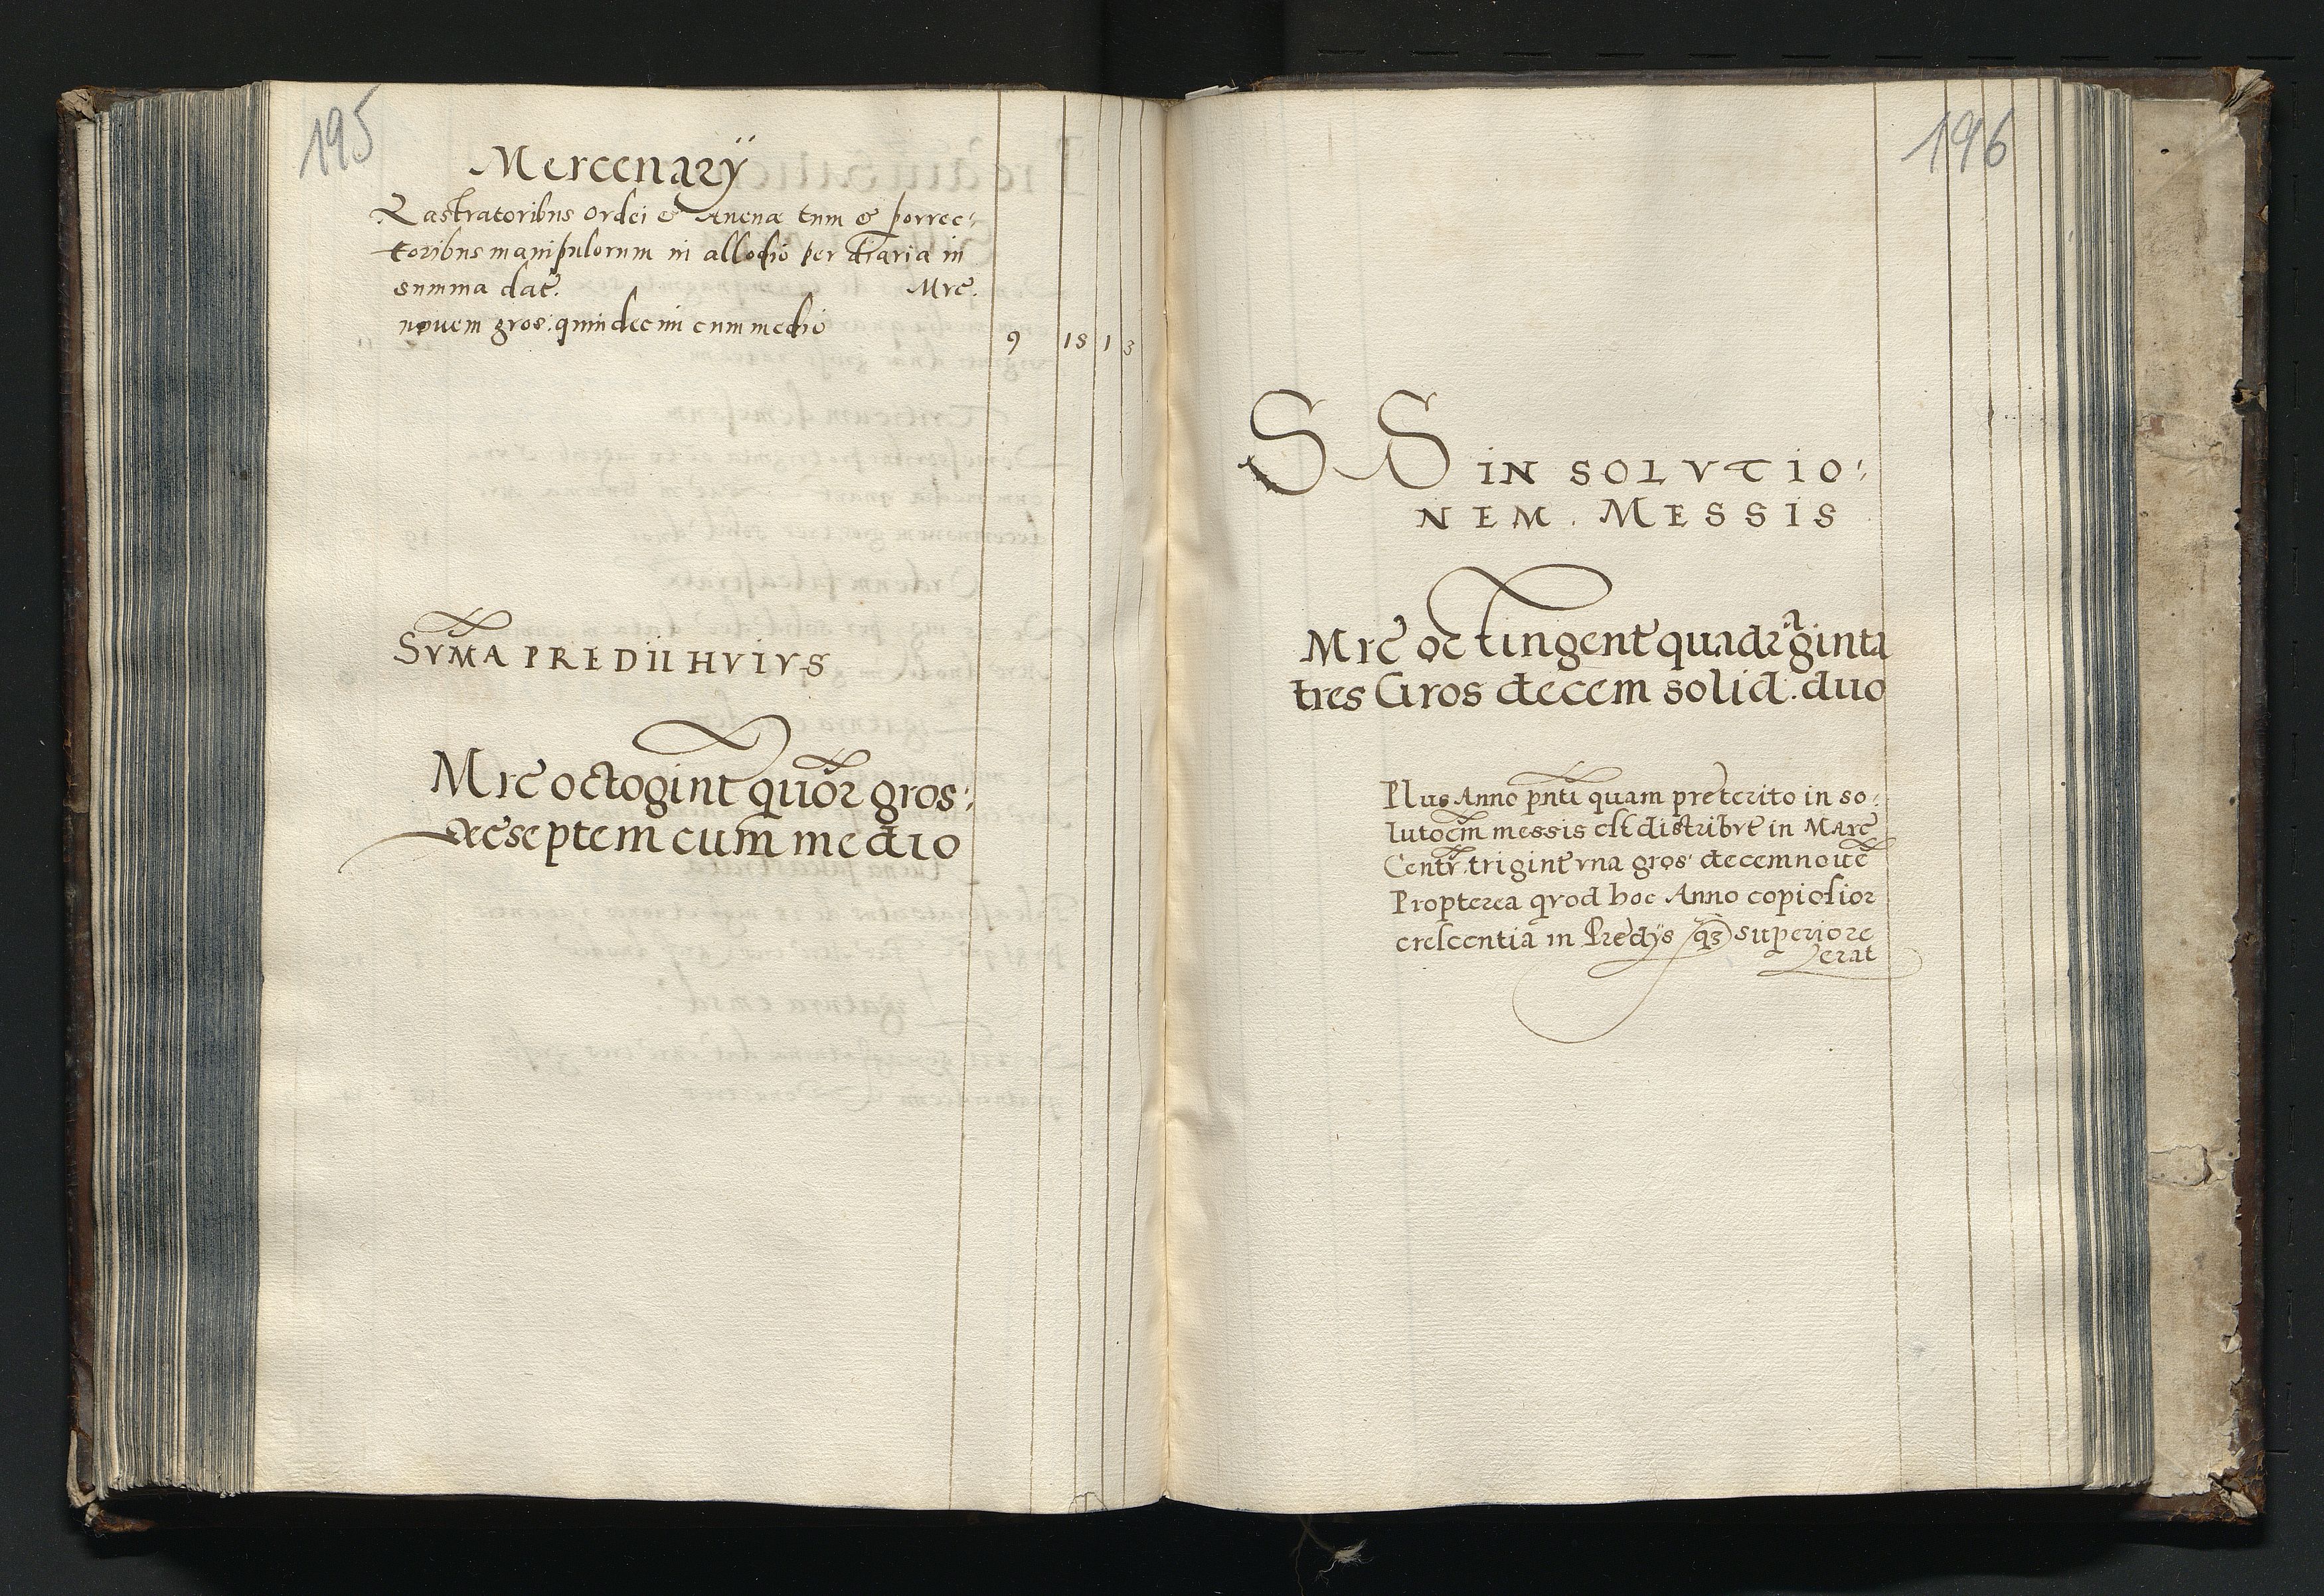 195
Mercenarÿ
Rastratoribus ordei & Auenæ tum & porrec:
toribus manipulorum in allodio per diaria in
summa dat. Mrc.
nouem gros: quindecim cum medio 9 15 1 3
SVMA PREDII HVIVS
Mrc octogint quor gros:
decseptem cum medio
196
SS IN SOLVTIO:
NEM. MESSIS
Mrc octingent quadraginta
tres Gros decem solid. duo
Plus Anno pnti quam preterito in so:
lutoem messis est distribvt in Marc
Centv. trigint vna gros: decemnoue
Propterea qvod hoc Anno copiosior
crescentia in Predÿs /qz/ superiore
erat